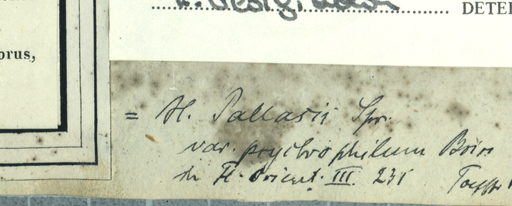 DETER
orus,
= H. Pallasii Spr.
var. psychrophilum Boiss
in Fl. Orient. III. 231